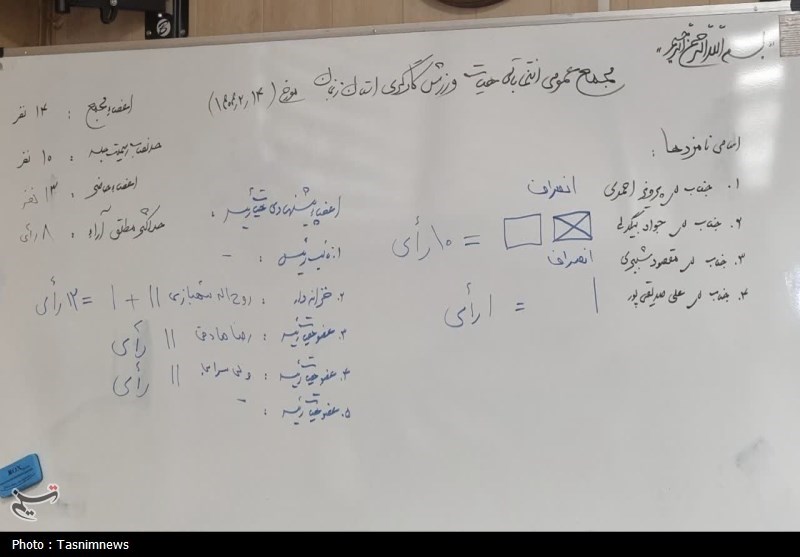 بسم الله الرحمن الرحیم
مجمع عمومی انتخاباتی هیات ورزش کارگری استان زنجان مورخ (۱۴۰۲/۲/۱۴)
اعضاء مجمع : ۱۴ نفر
حد نصاب رسمیت جلسه : ۱۰ نفر
اعضاء حاضر : ۱۳ نفر
حداکثر مطلق آراء : ۸ رأی
اسامی نامزدها :
۱. جناب آقای پرویز احمدی انصراف
۲. جناب آقای جواد بیگدلی = ۱۰ رأی
۳. جناب آقای مقصود شیری انصراف
۴. جناب آقای علی صدیقی پور ۱ = ۱ رأی
اعضاء پیشنهادی هیات رئیسه :
۱. نایب رئیس : -
۲. خزانه دار : روح اله شهبازی ۱۱ + ۱ = ۱۲ رأی
۳. عضو هیات رئیسه : رضا صادقی ۱۱ رأی
۴. عضو هیات رئیسه : ۱۱ رأی
۵. عضو هیات رئیسه : -
BOX
تسنیم
Photo : Tasnimnews